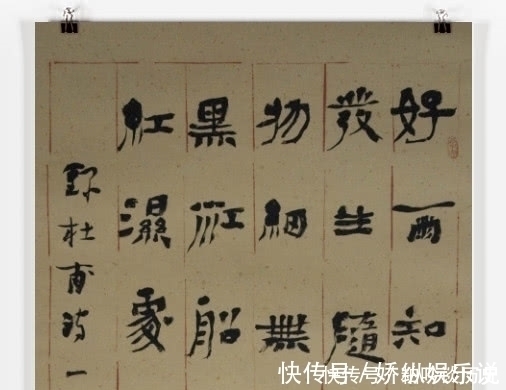 好雨知
發生隨
物細無
黑江船
紅濕處
錄杜甫詩一
快传号/娇纵娱乐说